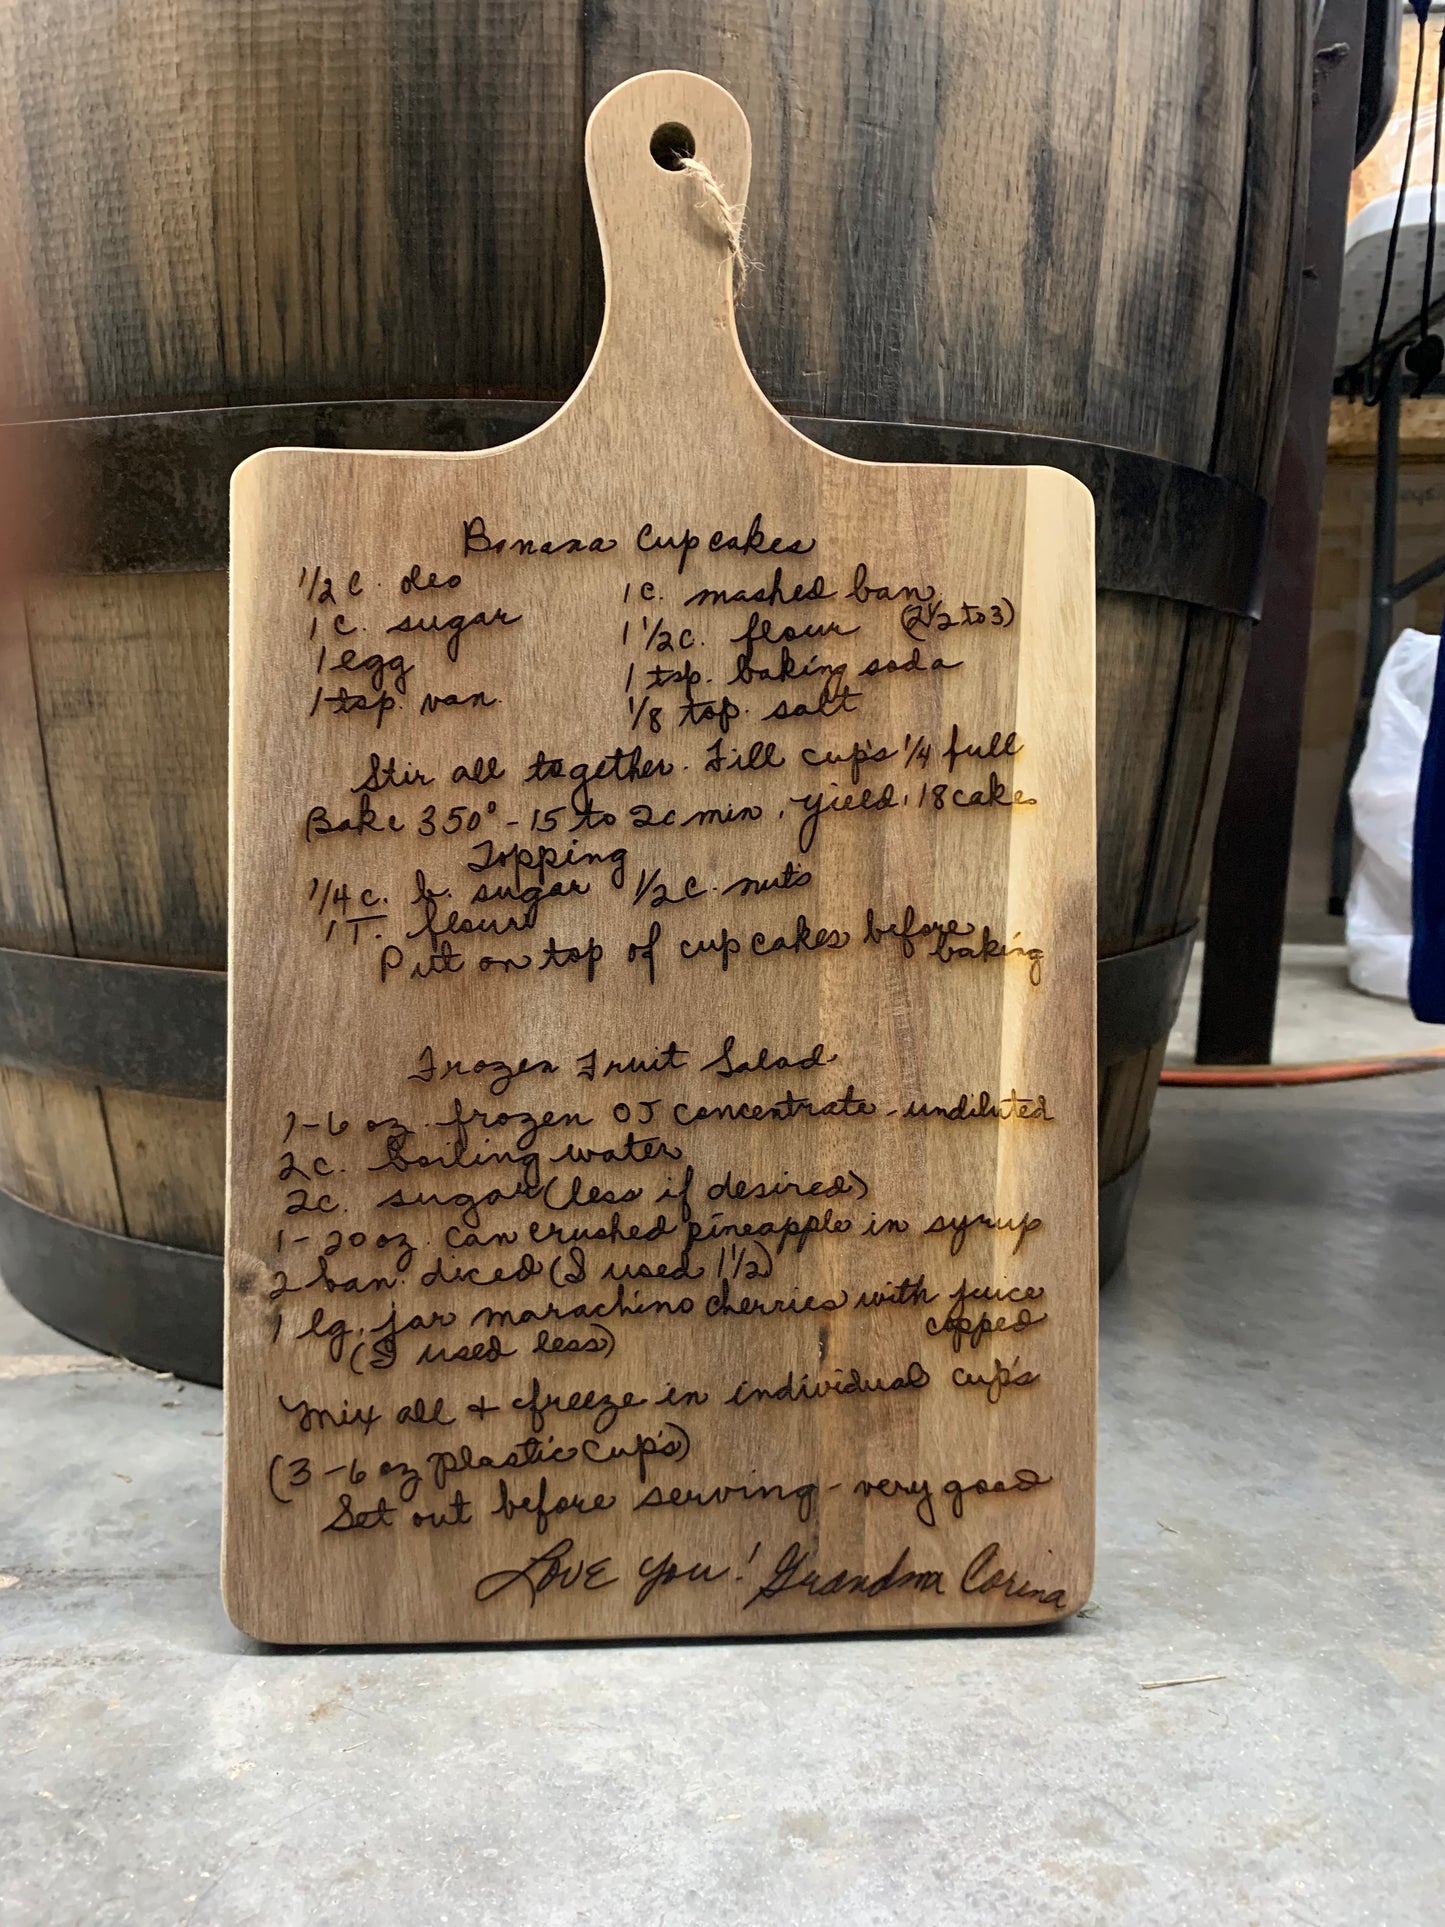 Banana Cupcakes
1/2 c. oleo 1 c. mashed ban.
1 c. sugar 1 1/2 c. flour (2 1/2 to 3)
1 egg 1 tsp. baking soda
1 tsp. van. 1/8 tsp. salt
Stir all together. Fill cup's 1/4 full
Bake 350° - 15 to 20 min, yield, 18 cakes
Topping
1/4 c. b. sugar 1/2 c. nuts
1 T. flour
Put on top of cup cakes before
baking
Frozen Fruit Salad
1-6 oz. frozen OJ concentrate - undiluted
2 c. boiling water
2 c. sugar (less if desired)
1-20 oz. can crushed pineapple in syrup
2 ban. diced (I used 1 1/2)
1 lg. jar marachino cherries with juice
copped
(I used less)
Mix all + freeze in individual cup's
(3-6 oz plastic cup's)
Set out before serving - very good
Love you! Grandma Corina